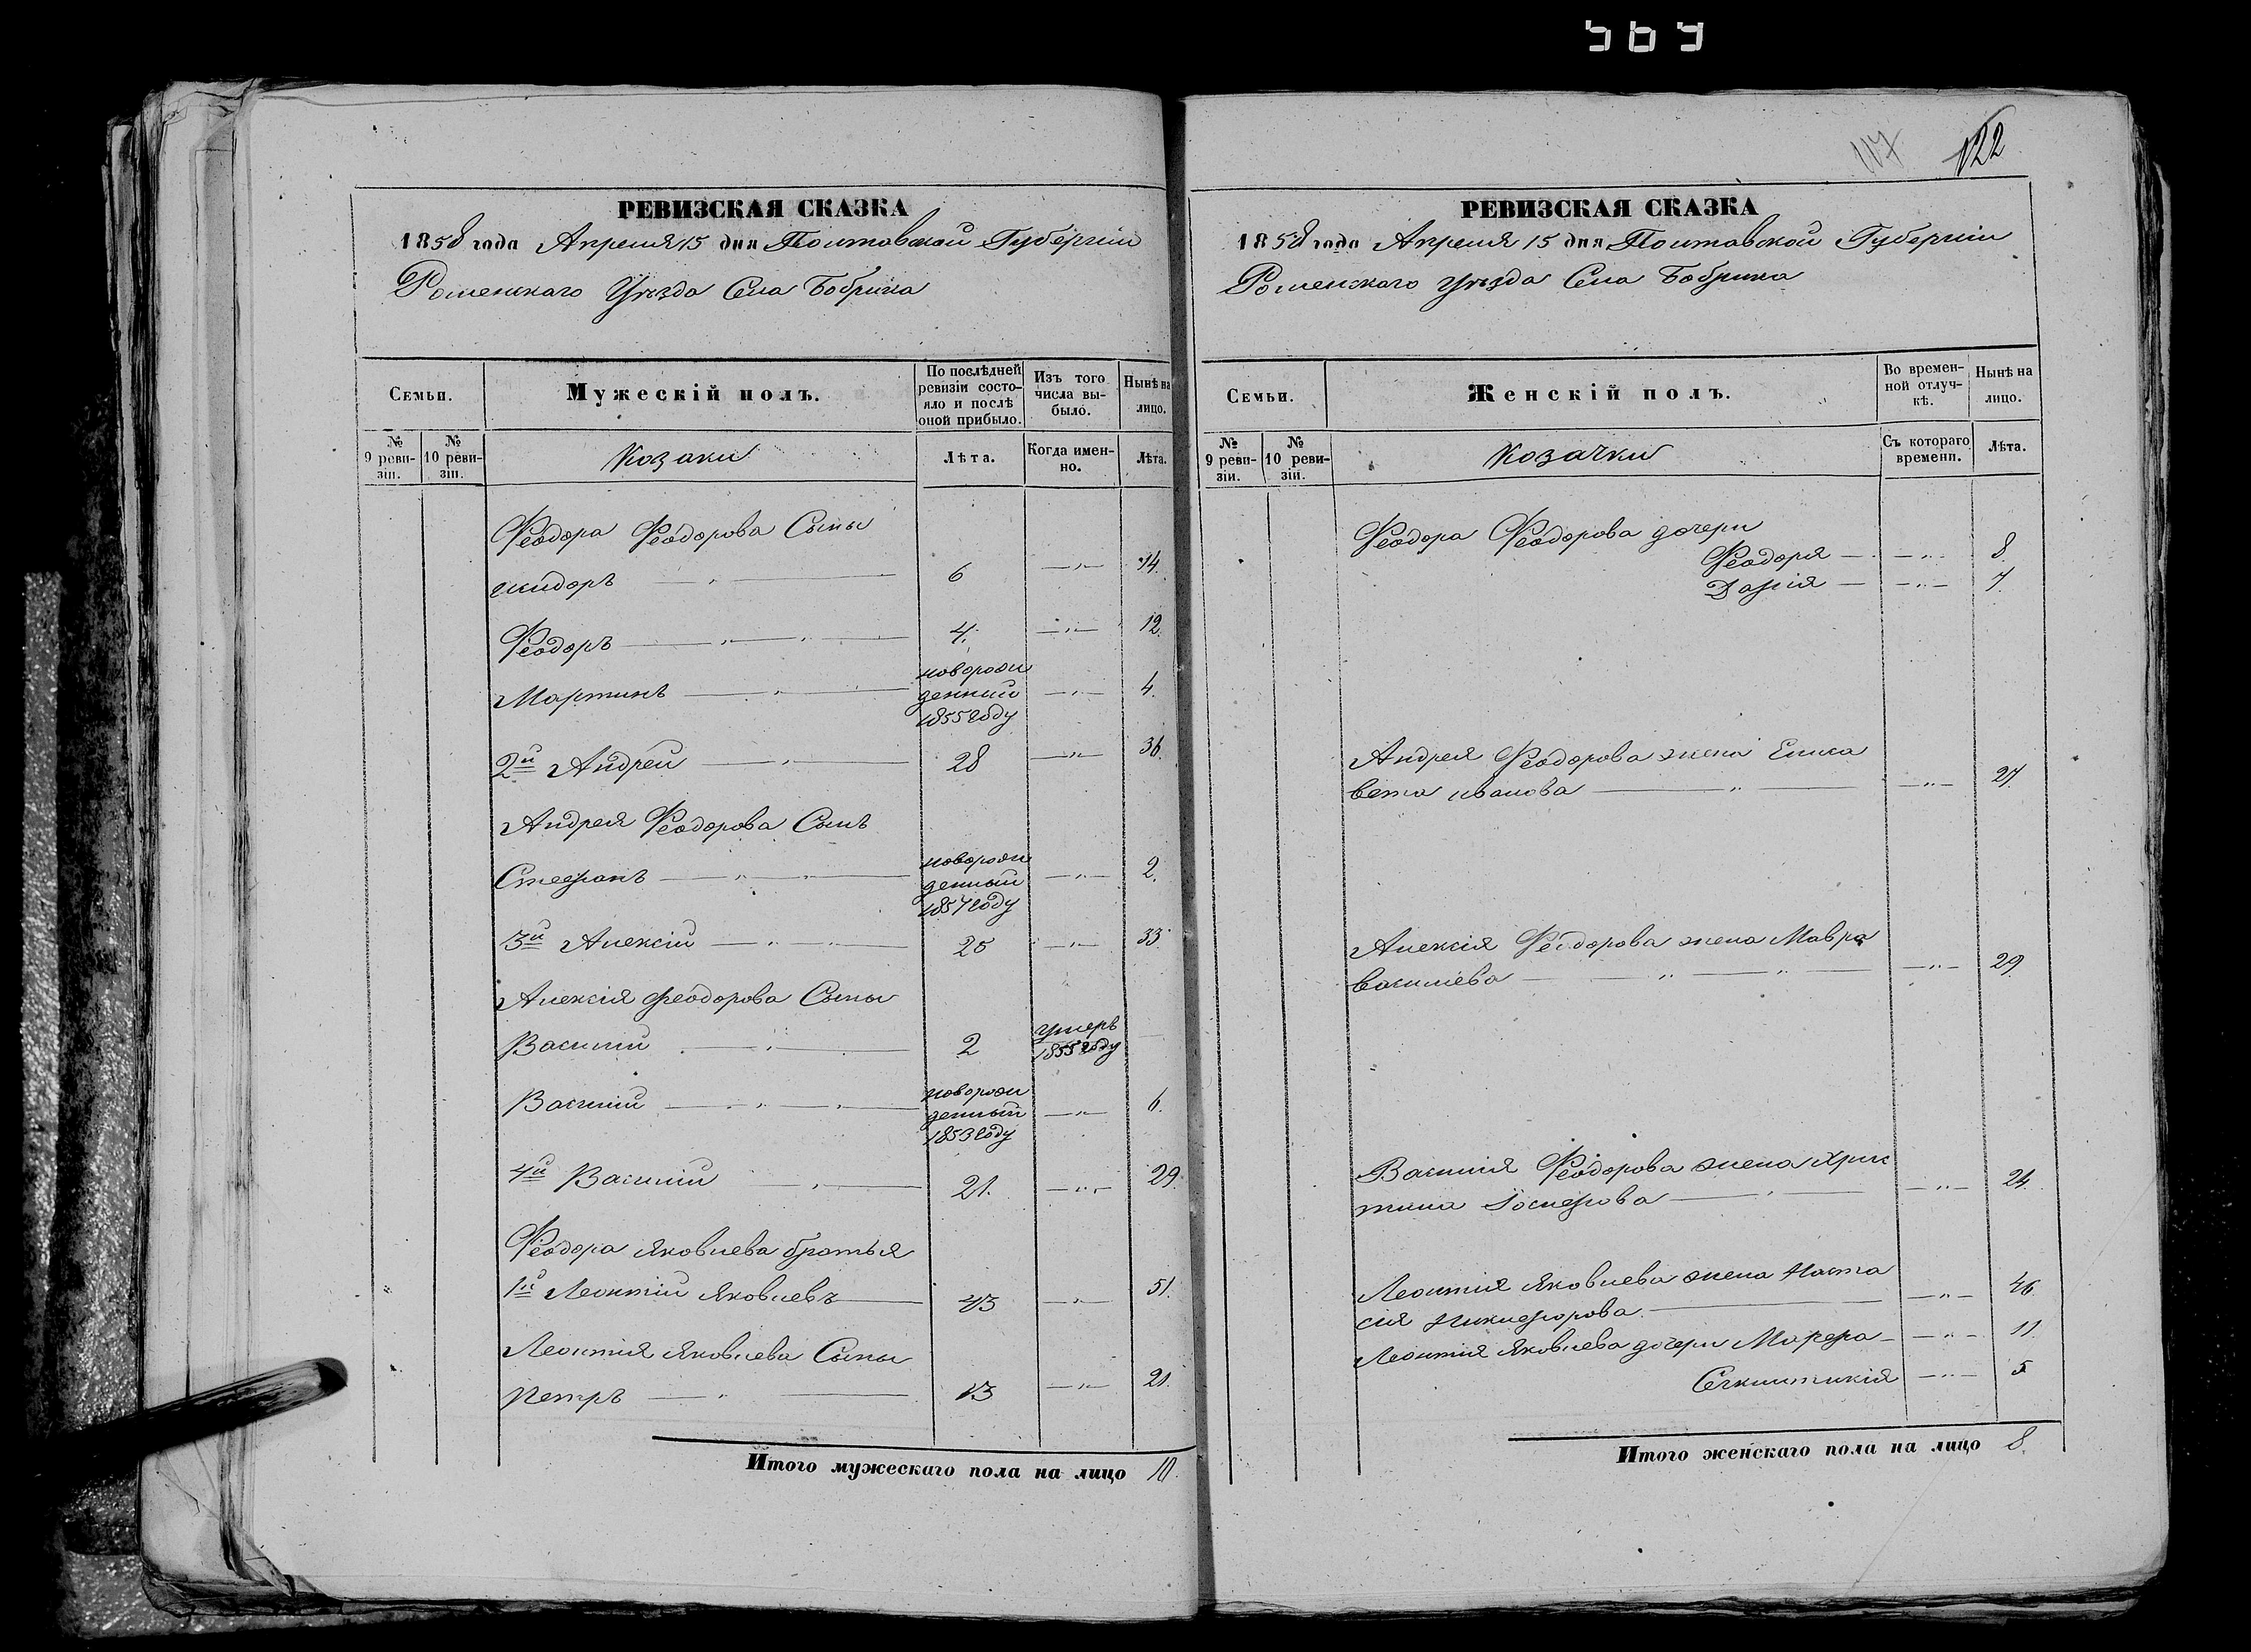 569
117 122
РЕВИЗСКАЯ СКАЗКА
1858 года Апреля 15 дня Полтавской Губерніи
Роменскаго Уѣзда Села Бобрика
Семьи.
Мужескій полъ.
По послѣдней ревизіи состояло и послѣ оной прибыло.
Изъ того числа выбыло.
Нынѣ на лицо.
№ 9 ревизіи.
№ 10 ревизіи.
Козаки
Лѣта.
Когда именно.
Лѣта.
Феодора Феодорова Сыны
6 —"— 14.
Феодоръ — " — " — 4. —"— 12.
Мартинъ — " — новорож
денний —"— 4.
1855 году
2й Андрей — " — 28 —"— 36.
Андрея Феодорова Сынъ
Стефанъ — " — " — новорож
денный —"— 2.
1857 году
3й Алексій — " — " — 25 —"— 33.
Алексія Феодорова Сыны
Василий — " — 2 умеръ
1855 году —
Василий — " — " — новорож
денный —"— 6.
1853 году
4й Василий — " — 21. —"— 29.
Феодора Яковлева братья
1й Леонтий Яковлевъ — 43 —"— 51.
Леонтия Яковлева Сыны
Петръ — " — 13 —"— 21.
Итого мужескаго пола на лицо 10.
РЕВИЗСКАЯ СКАЗКА
1858 года Апреля 15 дня Полтавской Губерніи
Роменскаго Уѣзда Села Бобрика
Семьи.
Женскій полъ.
Во временной отлучкѣ.
Нынѣ на лицо.
№ 9 ревизіи.
№ 10 ревизіи.
Козачки
Съ котораго времени.
Лѣта.
Феодора Феодорова дочери
Феодора — —"— 8
Дарія — —"— 7.
Андрея Феодорова жена Елиса
вета иванова — " — —"— 27.
Алексія Феодорова жена Мавра
василіева — " — " — —"— 29.
Василия Феодорова жена Хрис
тина Іосифова — " — —"— 24.
Леонтия Яковлева жена Наста
сия Никифорова — —"— 46
Леонтия Яковлева дочери Марфа — —"— 11.
—"— 5
Итого женскаго пола на лицо 8.